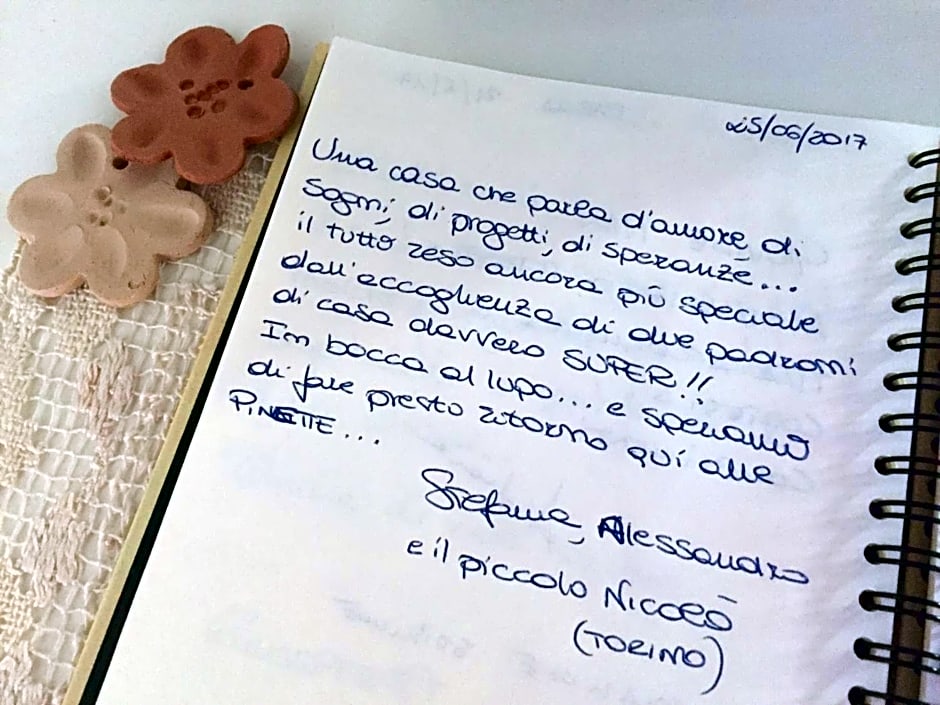 25/06/2017
Una casa che parla d'amore, di
sogni, di progetti, di speranze...
il tutto reso ancora più speciale
dall'accoglienza di due padroni
di casa davvero SUPER!!
In bocca al lupo... e speriamo
di fare presto ritorno qui alle
PINETTE...
Stefania, Alessandro
e il piccolo Niccolò
(TORINO)